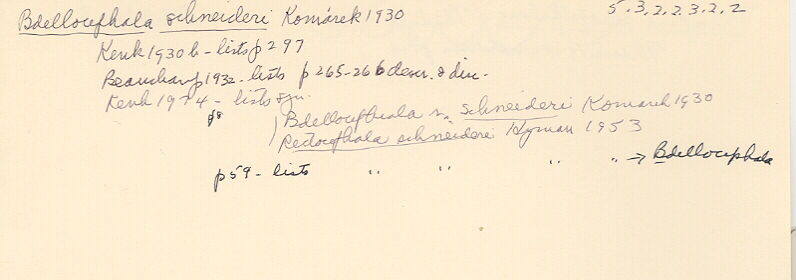 Bdellocephala schneideri Komárek 1930 5.3.2.2.3.2.2
Kenk 1930 b - lists p 297
Beauchamp 1932 - lists p 265-266 descr. & disc.
Kenk 1974 - lists syn.
p8 ) Bdellocephala n. schneideri Komarek 1930
Rectocephala schneideri Hyman 1953
p 59 - lists " " " " → Bdellocephala